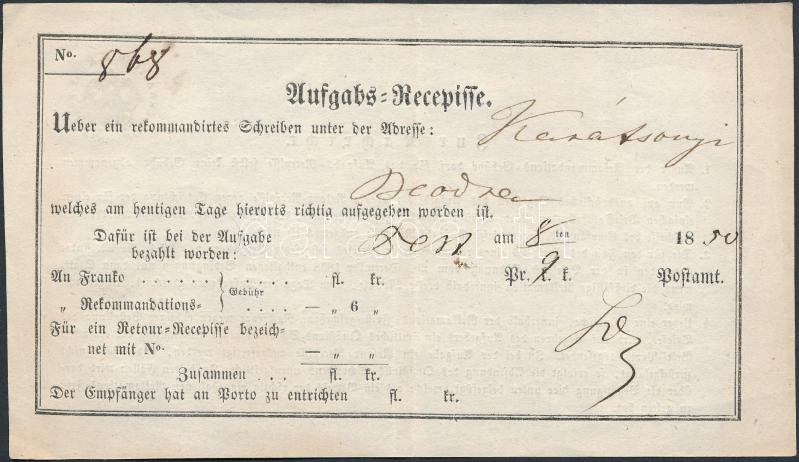 No. 868
Aufgabs=Recepisse.
Ueber ein rekommandirtes Schreiben unter der Adresse: Karátsonyi
Beodra
welches am heutigen Tage hierorts richtig aufgegeben worden ist.
Dafür ist bei der Aufgabe Pest am 8/9 ten 1850
bezahlt worden: Pr. k. k. Postamt.
An Franko . . . . . . } Gebühr . . . . fl. kr.
„ Rekommandations- . . . . — „ 6 „
Für ein Retour-Recepisse bezeich-
net mit No. — „ „
Zusammen . . . fl. kr.
Der Empfänger hat an Porto zu entrichten fl. kr.